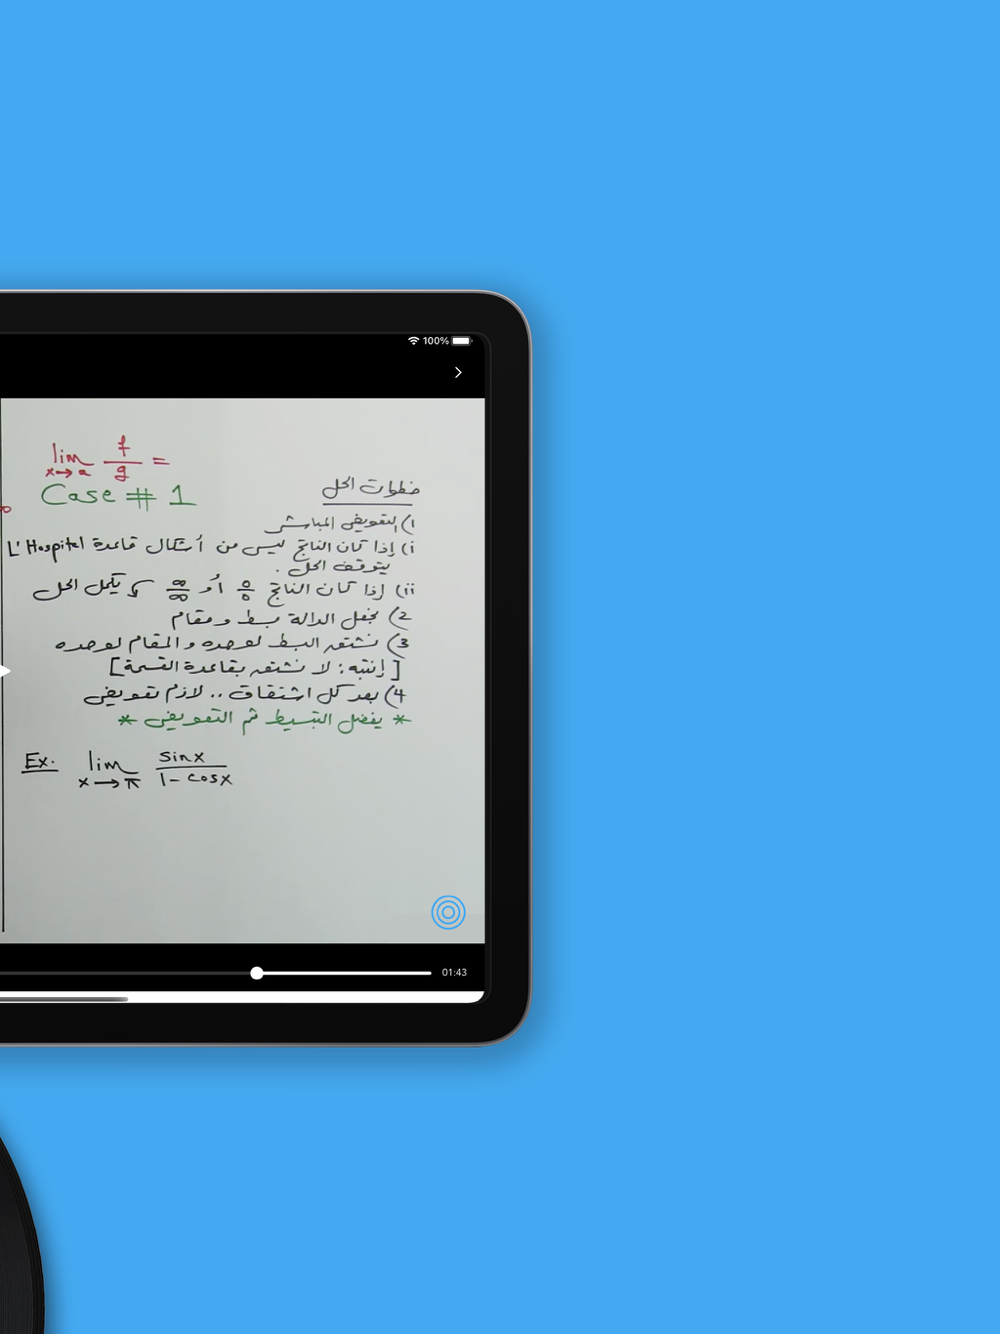 100%
lim x→a f/g =
Case # 1
خطوات الحل
1) التعويض المباشر
i) إذا كان الناتج ليس من أشكال قاعدة L'Hospitel
يتوقف الحل .
ii) إذا كان الناتج 0/0 أو ∞/∞ يكمل الحل
2) نجعل الدالة بسط ومقام
3) نشتق البسط لوحده والمقام لوحده
[إنتبه: لا نشتق بقاعدة القسمة]
4) بعد كل اشتقاق .. لازم تعويض
* يفضل التبسيط ثم التعويض *
Ex. lim x→π sinx / 1-cosx
01:43